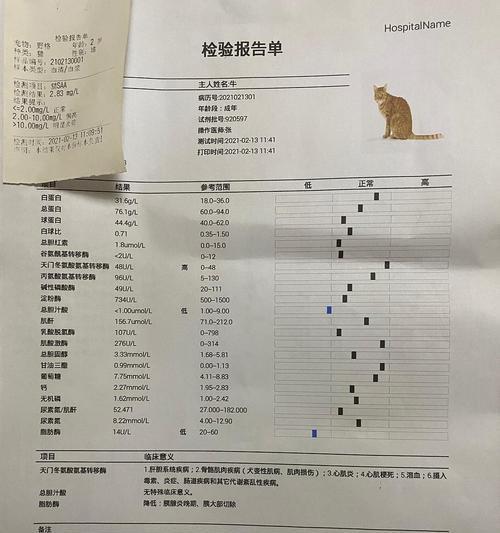 检验报告单
宠物: 野格 年龄: 2 岁
种类: 猫 性别: 雄
样品编号: 2102130001
样本类型: 血清/血浆
检测项目: fSAA
检测结果: 2.83 mg/L
结果提示:
<=2.00mg/L 正常
2.00-10.00mg/L 偏高
>10.00mg/L 明显炎症
检测时间: 2021-02-13 11:09:51
声明: 本结果仅对本份标本负责!
HospitalName
检验报告单
主人姓名:牛
病历号:2021021301
年龄段: 成年
试剂批号:920597
操作医师:张
测试时间:2021-02-13 11:41
打印时间:2021-02-13 11:41
项目 结果 参考范围 低 正常 高
白蛋白 31.6g/L 18.0-36.0
总蛋白 76.1g/L 60.0-94.0
球蛋白 44.4g/L 40.0-62.0
白球比 0.71 0.35-1.50
总胆红素 1.8umol/L 0.0-15.0
谷氨酰基转移酶 <2U/L 0-12
天门冬氨酸氨基转移酶 48U/L 高 0-48
丙氨酸氨基转移酶 96U/L 5-130
碱性磷酸酶 49U/L 20-111
淀粉酶 734U/L 500-1500
总胆汁酸 <1.00umol/L 低 1.00-9.00
肌酐 156.7umol/L 71.0-212.0
乳酸脱氢酶 107U/L 0-798
肌酸激酶 276U/L 0-314
总胆固醇 3.33mmol/L 1.68-5.81
甘油三酯 0.99mmol/L 0.00-1.13
葡萄糖 7.75mmol/L 4.11-8.83
钙 2.27mmol/L 1.95-2.83
无机磷 1.62mmol/L 1.00-2.42
尿素氮/肌酐 52.471 27.000-182.000
尿素氮 8.22mmol/L 4.00-12.90
脂肪酶 14U/L 低 20-60
项目 临床意义
天门冬氨酸氨基转移酶 1.肝胆系统疾病;2.骨骼肌肉疾病(犬变性肌病、肌肉损伤);3.心肌炎;4.心肌梗死;5.溶血;6.摄入
毒素、炎症、肠道疾病和其它代谢紊乱性疾病。
总胆汁酸 无特殊临床意义。
脂肪酶 降低:胰腺炎晚期、胰大部切除
备注